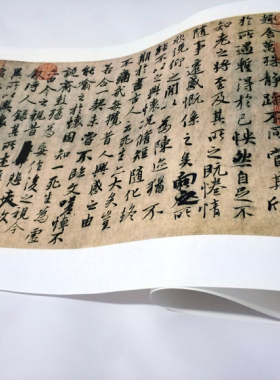 舍萬殊靜躁不同當其欣
於所遇暫得於己怏然自足不
知老之將至及其所之既惓情
隨事遷感慨係之矣向之所
欣俛仰之間以為陳迹猶不
能不以之興懷況脩短隨化終
期於盡古人云死生亦大矣豈
不痛哉每攬昔人興感之由
若合一契未嘗不臨文嗟悼不
能喻之於懷固知一死生為虛
誕齊彭殤為妄作後之視今
亦由今之視昔悲夫故
列敘時人錄其所述
異所以興懷